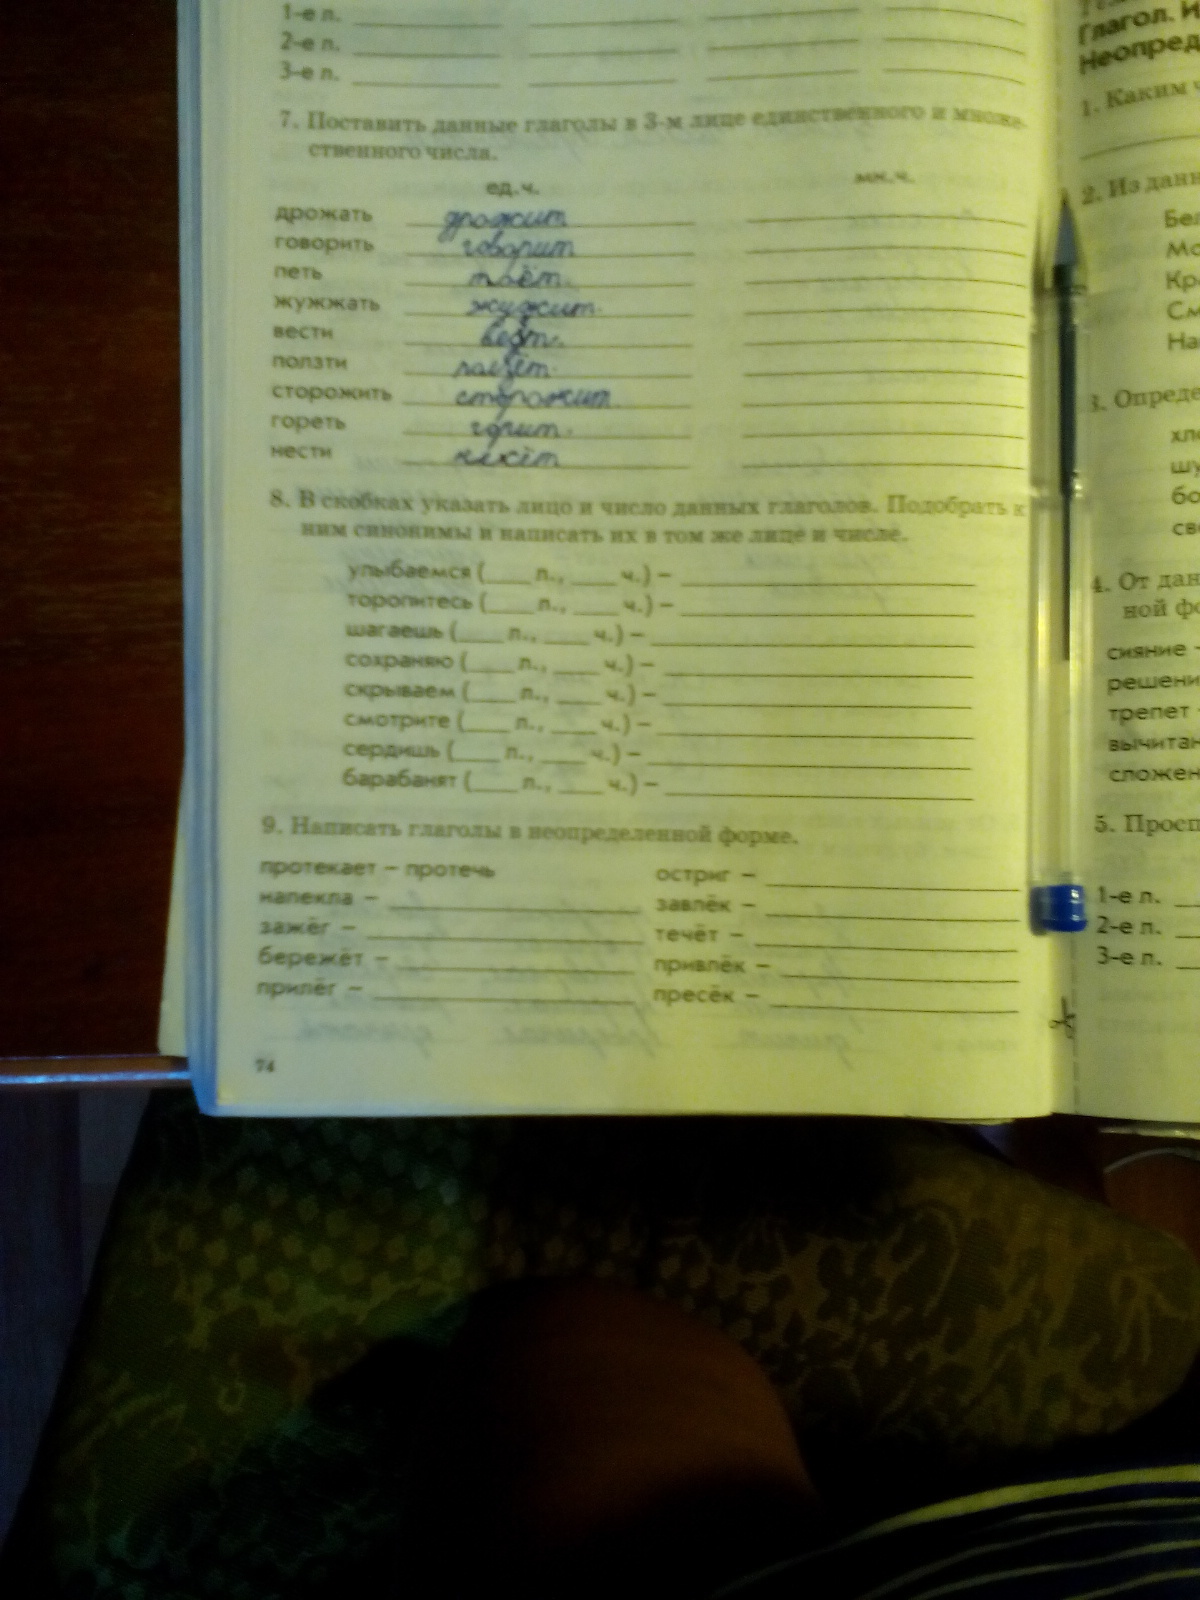 1-е л.
2-е л.
3-е л.
7. Поставить данные глаголы в 3-м лице единственного и множе-
ственного числа.
ед.ч. мн.ч.
дрожать дрожит
говорить говорит
петь поёт.
жужжать жужит.
вести
ползти ползёт.
сторожить сторожит
гореть горит.
нести несёт
8. В скобках указать лицо и число данных глаголов. Подобрать к
ним синонимы и написать их в том же лице и числе.
улыбаемся (___ л., ___ ч.) –
торопитесь (___ л., ___ ч.) –
шагаешь (___ л., ___ ч.) –
сохраняю (___ л., ___ ч.) –
скрываем (___ л., ___ ч.) –
смотрите (___ л., ___ ч.) –
сердишь (___ л., ___ ч.) –
барабанят (___ л., ___ ч.) –
9. Написать глаголы в неопределенной форме.
протекает – протечь остриг –
напекла – завлёк –
зажёг – течёт –
бережёт – привлёк –
прилёг – пресёк –
74
Глагол. И
Неопред
1. Каким ч
2. Из данн
Бел
Мо
Кра
См
На
3. Опреде
хло
шу
бо
св
4. От дан
ной фо
сияние –
решени
трепет –
вычитан
сложен
5. Просп
1-е л.
2-е л.
3-е л.